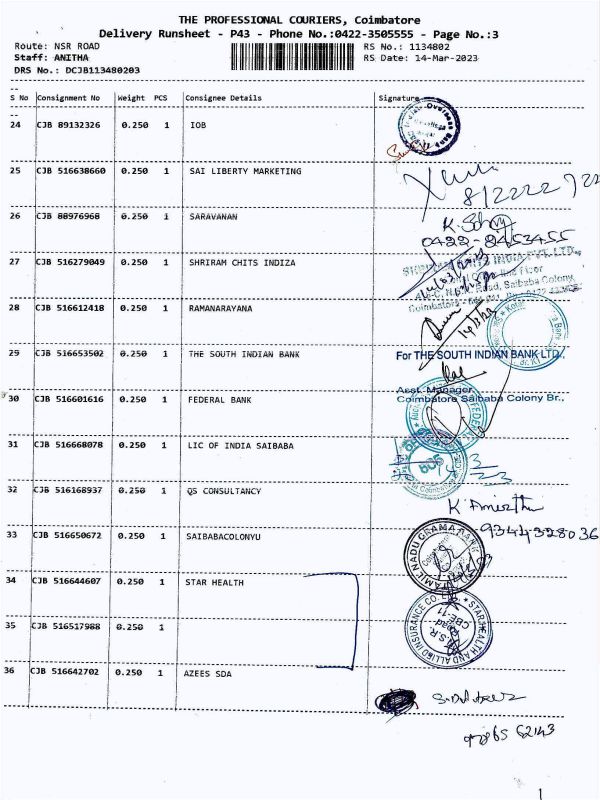 THE PROFESSIONAL COURIERS, Coimbatore
Delivery Runsheet - P43 - Phone No.:0422-3505555 - Page No.:3
Route: NSR ROAD RS No.: 1134802
Staff: ANITHA RS Date: 14-Mar-2023
DRS No.: DCJB113480203
S No Consignment No Weight PCS Consignee Details Signature
24 CJB 89132326 0.250 1 IOB
25 CJB 516638660 0.250 1 SAI LIBERTY MARKETING
26 CJB 88976968 0.250 1 SARAVANAN
0422-2453455
27 CJB 516279049 0.250 1 SHRIRAM CHITS INDIZA
Road, Saibaba Colony,
28 CJB 516612418 0.250 1 RAMANARAYANA
14/3/23
29 CJB 516653502 0.250 1 THE SOUTH INDIAN BANK For THE SOUTH INDIAN BANK LTD.,
Asst. Manager
30 CJB 516601616 0.250 1 FEDERAL BANK Coimbatore Saibaba Colony Br.,
31 CJB 516668078 0.250 1 LIC OF INDIA SAIBABA
32 CJB 516168937 0.250 1 QS CONSULTANCY
9344328036
33 CJB 516650672 0.250 1 SAIBABACOLONYU
TAMIL NADU GRAMA BANK
34 CJB 516644607 0.250 1 STAR HEALTH
STAR HEALTH AND ALLIED INSURANCE CO.
35 CJB 516517988 0.250 1
36 CJB 516642702 0.250 1 AZEES SDA